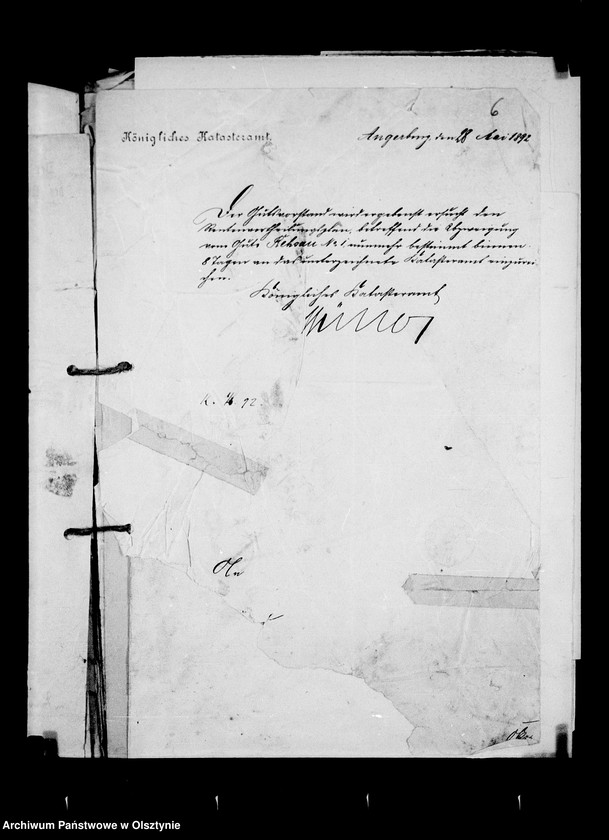 6
Königliches Katasteramt.
Angerburg, den 28 Mai 1892
Der Gutsvorstand wird ergebenst ersucht den
Rentenvertheilungsplan, betreffend die Abzweigung
vom Gute Rehsau № 1 nunmehr bestimmt binnen
8 Tagen an das unterzeichnete Katasteramt einzurei-
chen.
Königliches Katasteramt
K. 92.
An
Archiwum Państwowe w Olsztynie